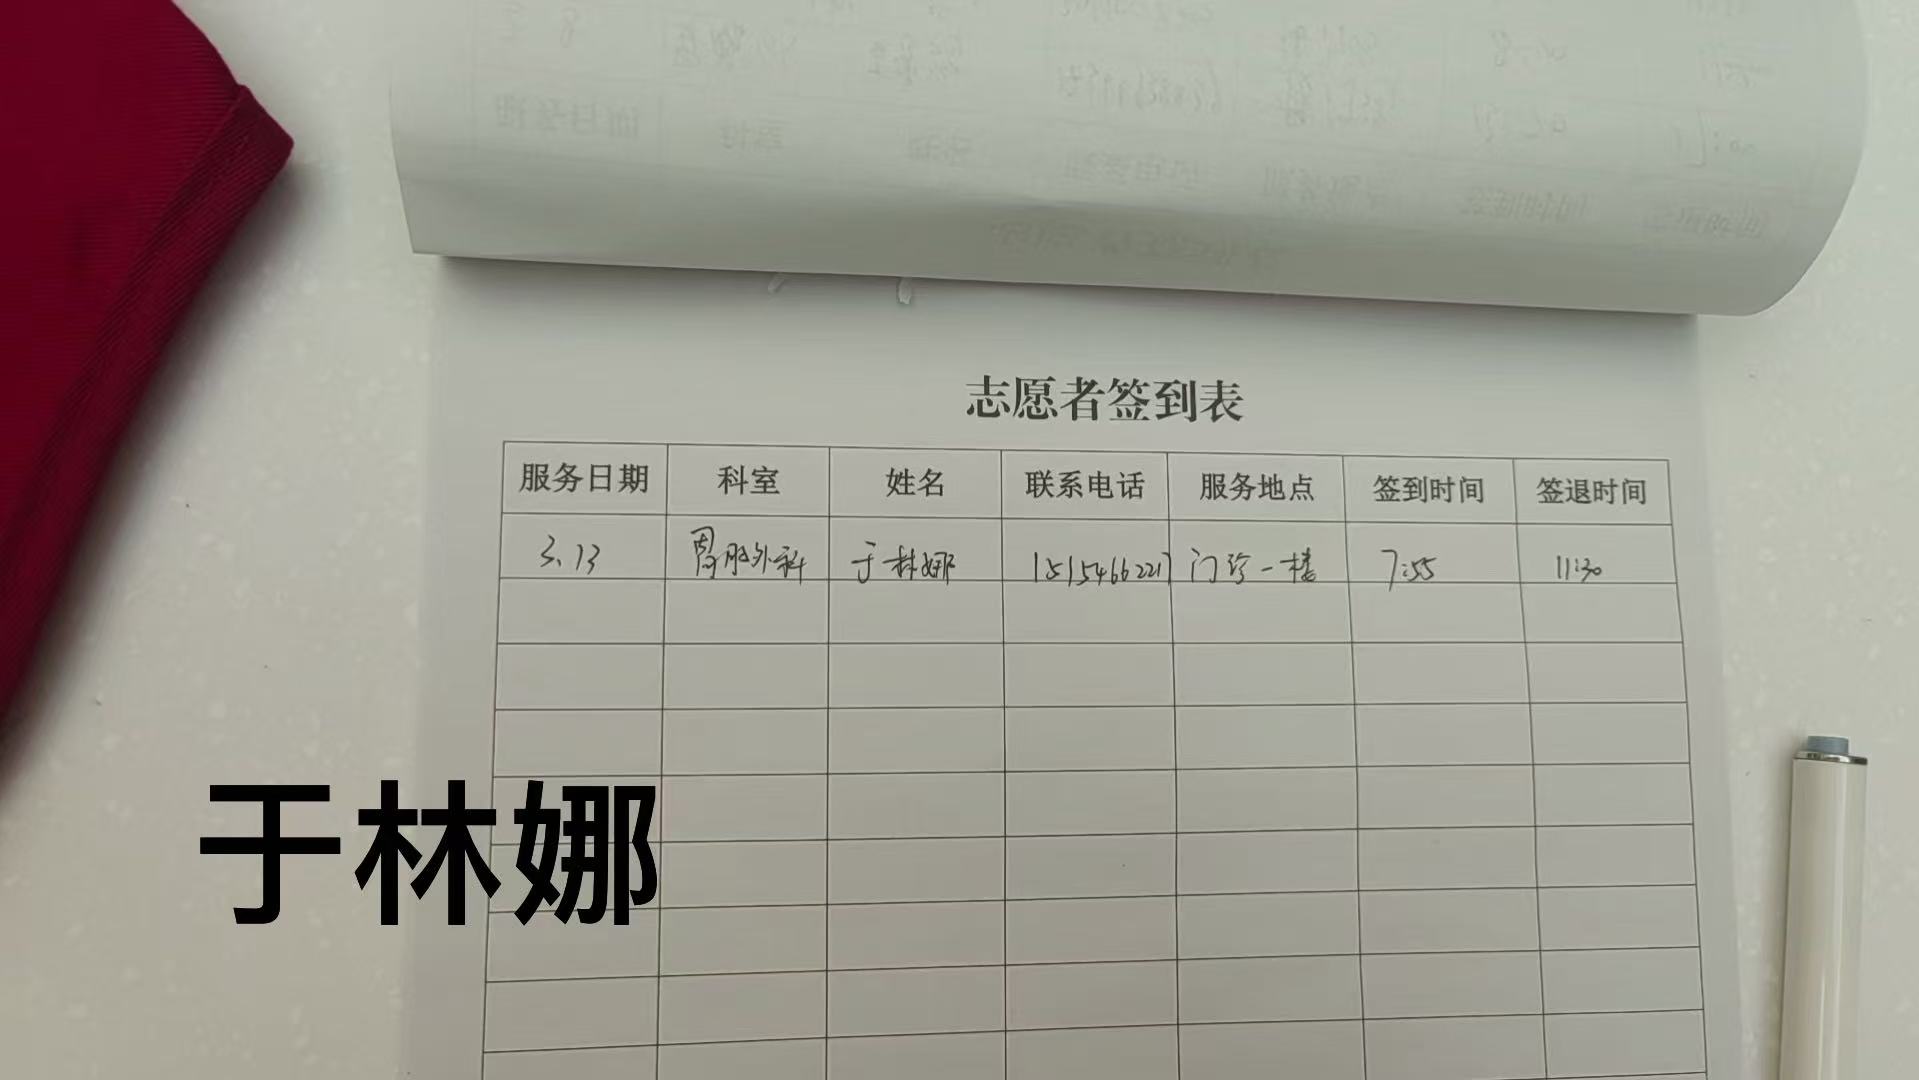 志愿者签到表
服务日期 科室 姓名 联系电话 服务地点 签到时间 签退时间
3.13 胃肠外科 于林娜 15154662217 门诊一楼 7:55 11:30
于林娜